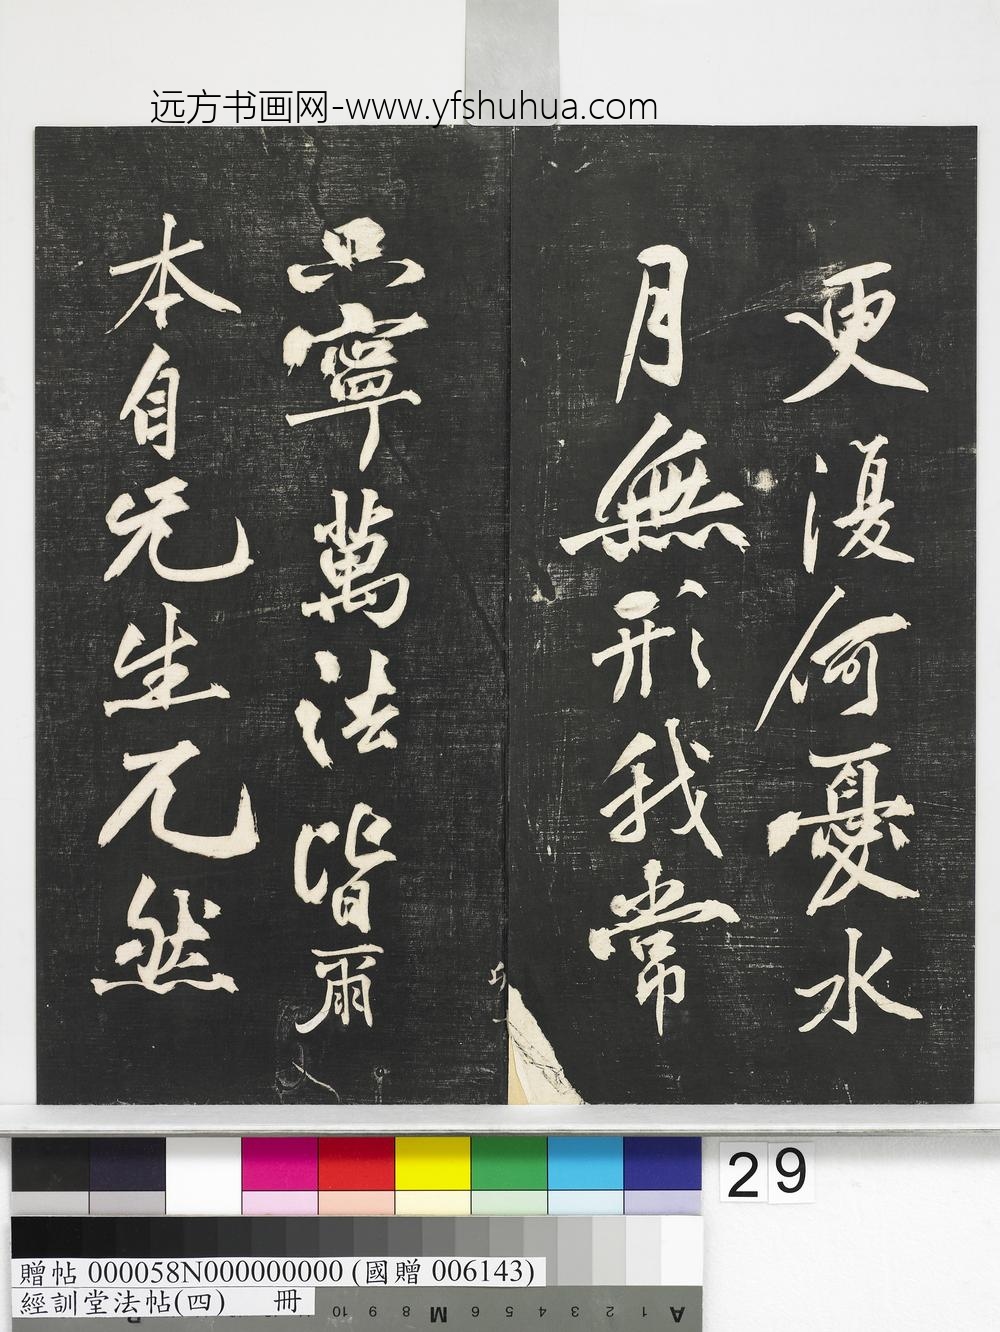 远方书画网-www.yfshuhua.com
更復何憂水
月無形我常
只寧萬法皆爾
本自无生兀然
29
贈帖 000058N000000000 (國贈 006143)
經訓堂法帖(四) 冊
A 1 2 3 4 5 6 M 8 9 10